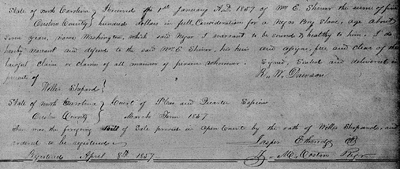 State of North Carolina } Received the 1st January A.D. 1857 of Wm E. the sum of five
County } hundred dollars in full Consideration for a Negro Boy Slave, age about
years, name Washington, which said Negro I warrant to be sound & healthy to him. I do
hereby warrant and defend to the said Wm E. his heirs and assigns free and clear of the
lawful claim or claims of all manner of persons whomsoever. Signed, Sealed and delivered in
presents of
Dawson
State of North Carolina } Court of Pleas and Quarter Sessions
County } March Term 1857
Then was the foregoing Bill of Sale proved in Open Court by the oath of and
ordered to be registered
Registered April 8th 1857